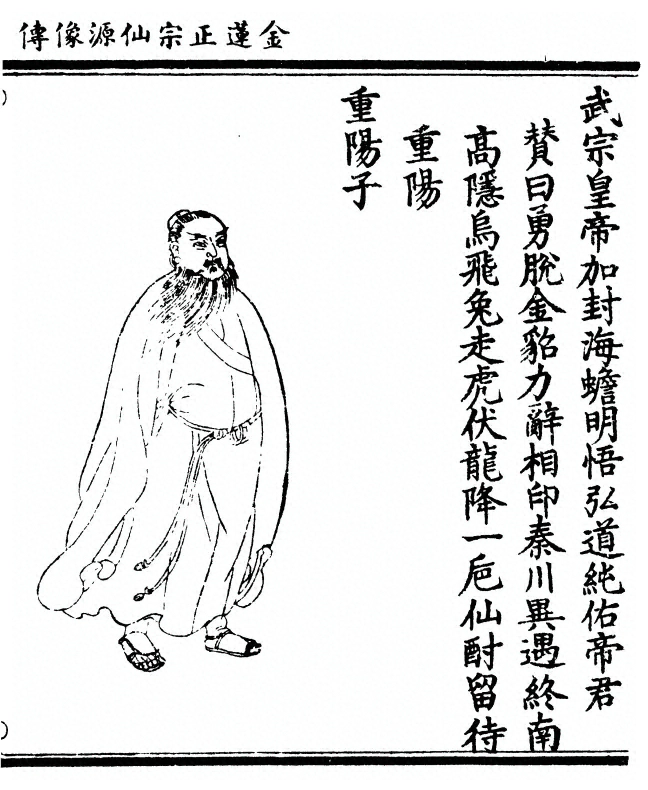 金蓮正宗仙源像傳
武宗皇帝加封海蟾明悟弘道純佑帝君
賛曰勇脫金貂力辭相印秦川異遇終南
高隱烏飛兔走虎伏龍降一巵仙酎留待
重陽
重陽子